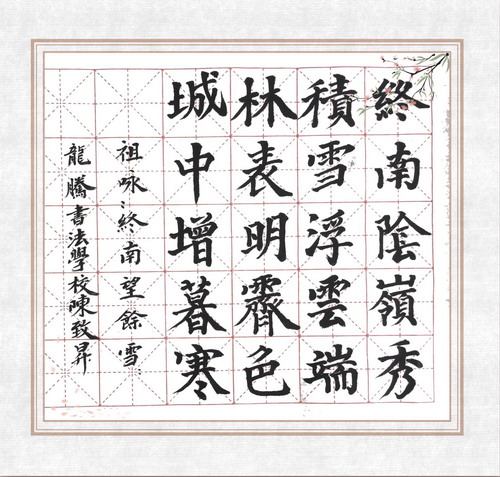 終南陰嶺秀
積雪浮雲端
林表明霽色
城中增暮寒
祖咏：終南望餘雪
龍騰書法學校陳致昇